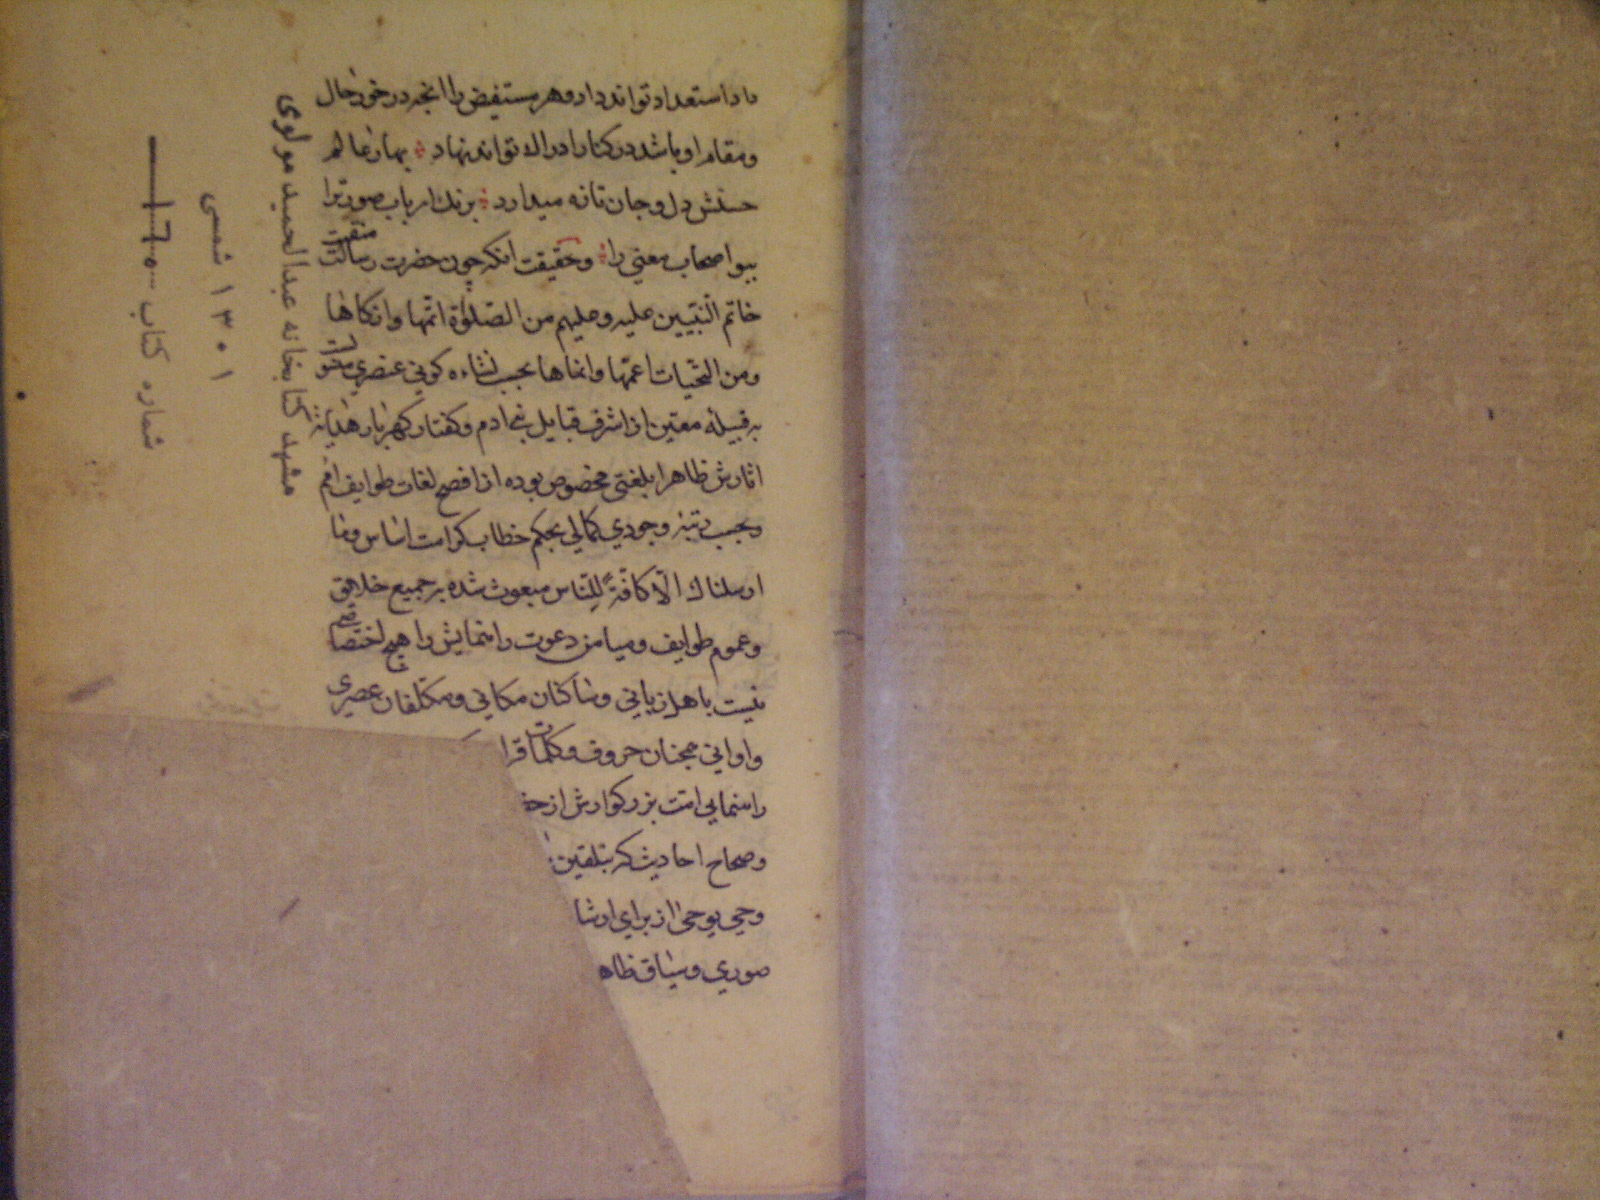 را داستعداد تواند داد و هر مستفیض را انچه در خور حال
و مقام او باشد در کنار ادراک تواند نهاد بهار عالم
حسنش دل و جان تازه میدارد برنک ارباب صورترا
ببو اصحاب معنی را و حقیقت انکه چون حضرت رسالت منقبت
خاتم النبیین علیه و علیهم من الصلوة اتمها و ازکاها
و من التحیات اعمها و انماها بحسب نشاءه کونی عنصری
به قبیلهٔ معین از اشرف قبایل بنی ادم و کفتار کهربار
اثارش ظاهرا بلغتی مخصوص بوده از افصح لغات طوایف امم
و بحسب رتبهٔ وجودی کمالی بحکم خطاب کرامت اساس وما
ارسلناک الّا کافّةً للنّاس مبعوث شده بر جمیع خلایق
و عموم طوایف و میامن دعوت راهنمایش را هیچ اختصاصی
نیست باهل زبانی و ساکنان مکانی و مکلفان عصری
و اوانی همچنان حروف و کلمات قرا
راهنمایی امت بزرکوارش از حـ
و صحاح احادیث که بتلقین
وحی یوحی از برای ارشا
صوری و سیاق ظاه
مشهد کتابخانه عبدالحمید مولوی
۱۳۰۱ شمسی
شماره کتاب